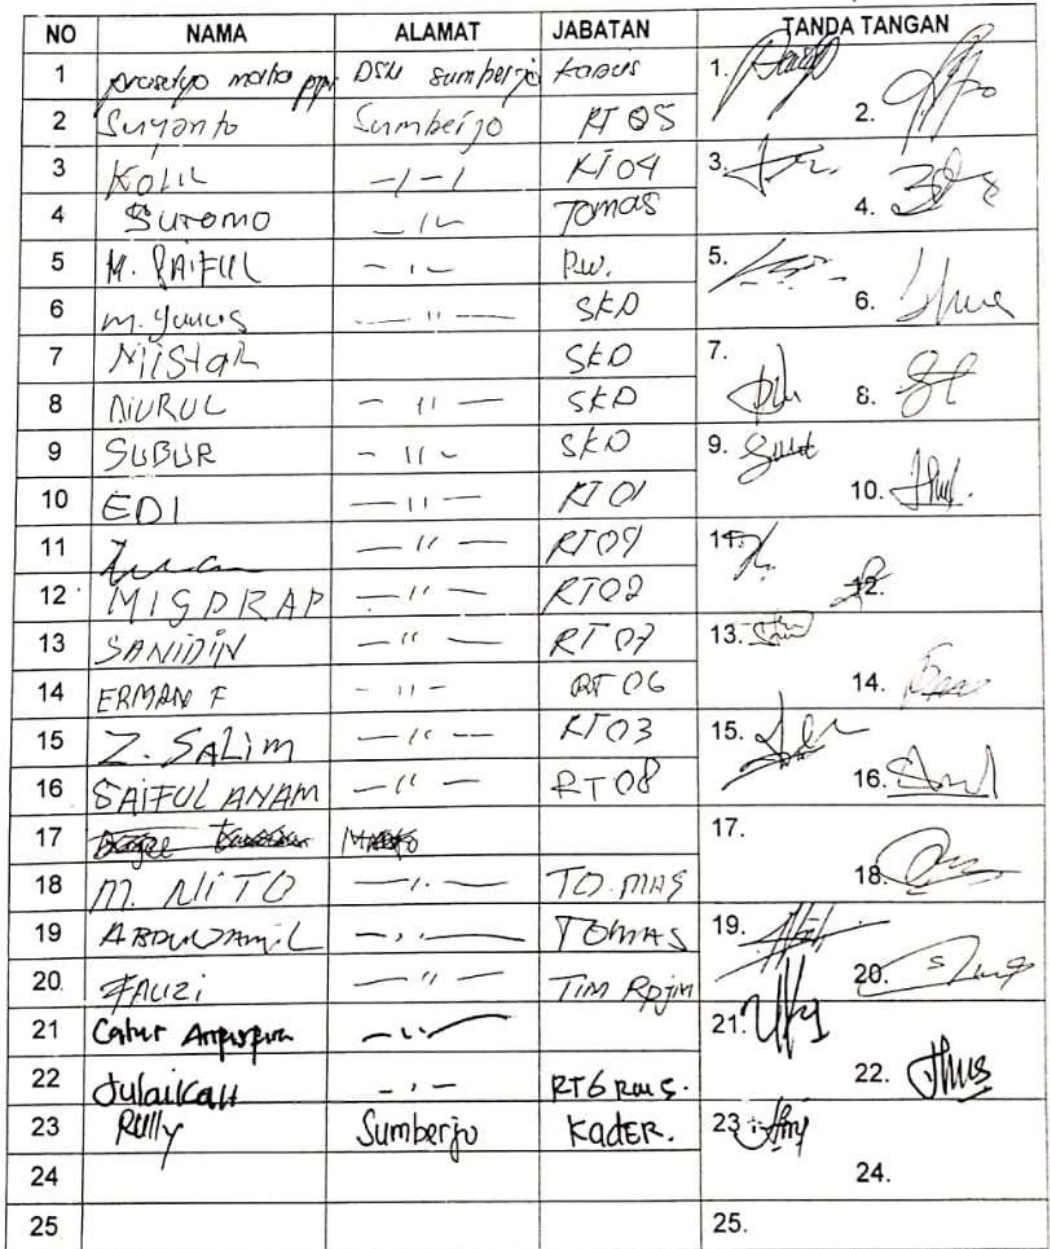 NO NAMA ALAMAT JABATAN TANDA TANGAN
1 prasetyo DSN sumberjo kasus 1.
2 Suyanto Sumberjo RT 05 2.
3 KOLIL -ı-ı RT 04 3.
4 Suromo Tomas 4.
5 M. SAIFUL RW. 5.
6 M. Yunus — ıı — SKD 6.
7 MiStaR SKD 7.
8 NURUL - ıı — SKD 8.
9 SUBUR - ıı - SKD 9.
10 EDI — ıı — RT 01 10.
11 — ıı — RT 09 11.
12 MISDRAP — ıı — RT02 12.
13 SANIDIN — ıı — RT 07 13.
14 ERMAN F - ıı - RT 06 14.
15 Z. SALIM — ıı — RT 03 15.
16 SAIFUL ANAM — ıı — RT 08 16.
17 17.
18 M. NITO TO.MAS 18.
19 ABDULJAMIL TOMAS 19.
20. FAUZI — ıı — TIM RPJM 20.
21 Catur 21.
22 Julaikah RT6 22.
23 Rully Sumberjo KadER. 23
24 24.
25 25.